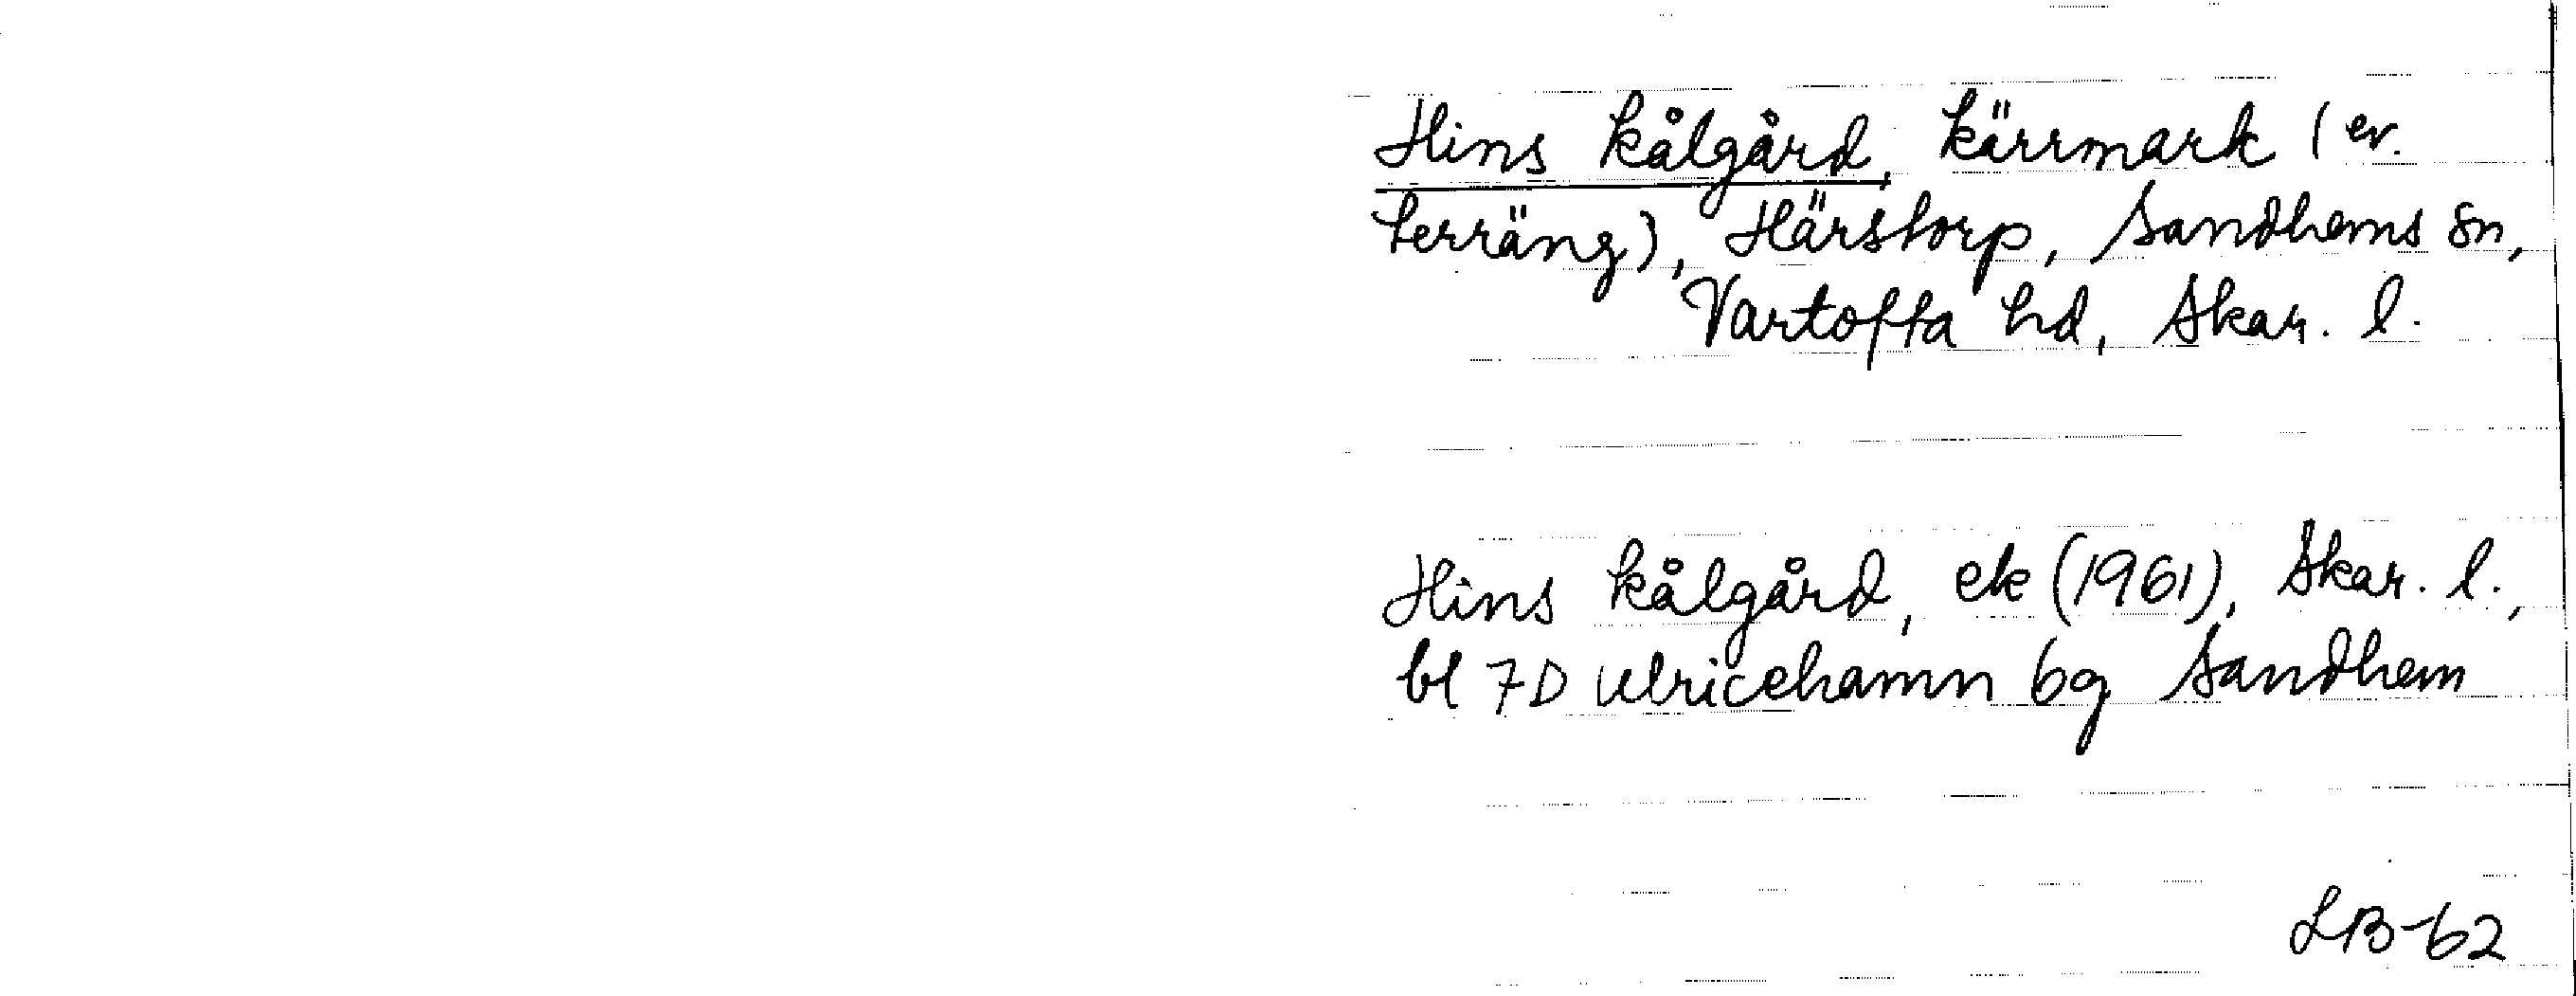 Hins kålgård, kärrmark (ev.
terräng), Härstorp, Sandhems sn,
Vartofta hd, Skar. l.
Hins kålgård, ek (1961), Skar. l.,
bl 7D Ulricehamn 6g Sandhem
LB-62